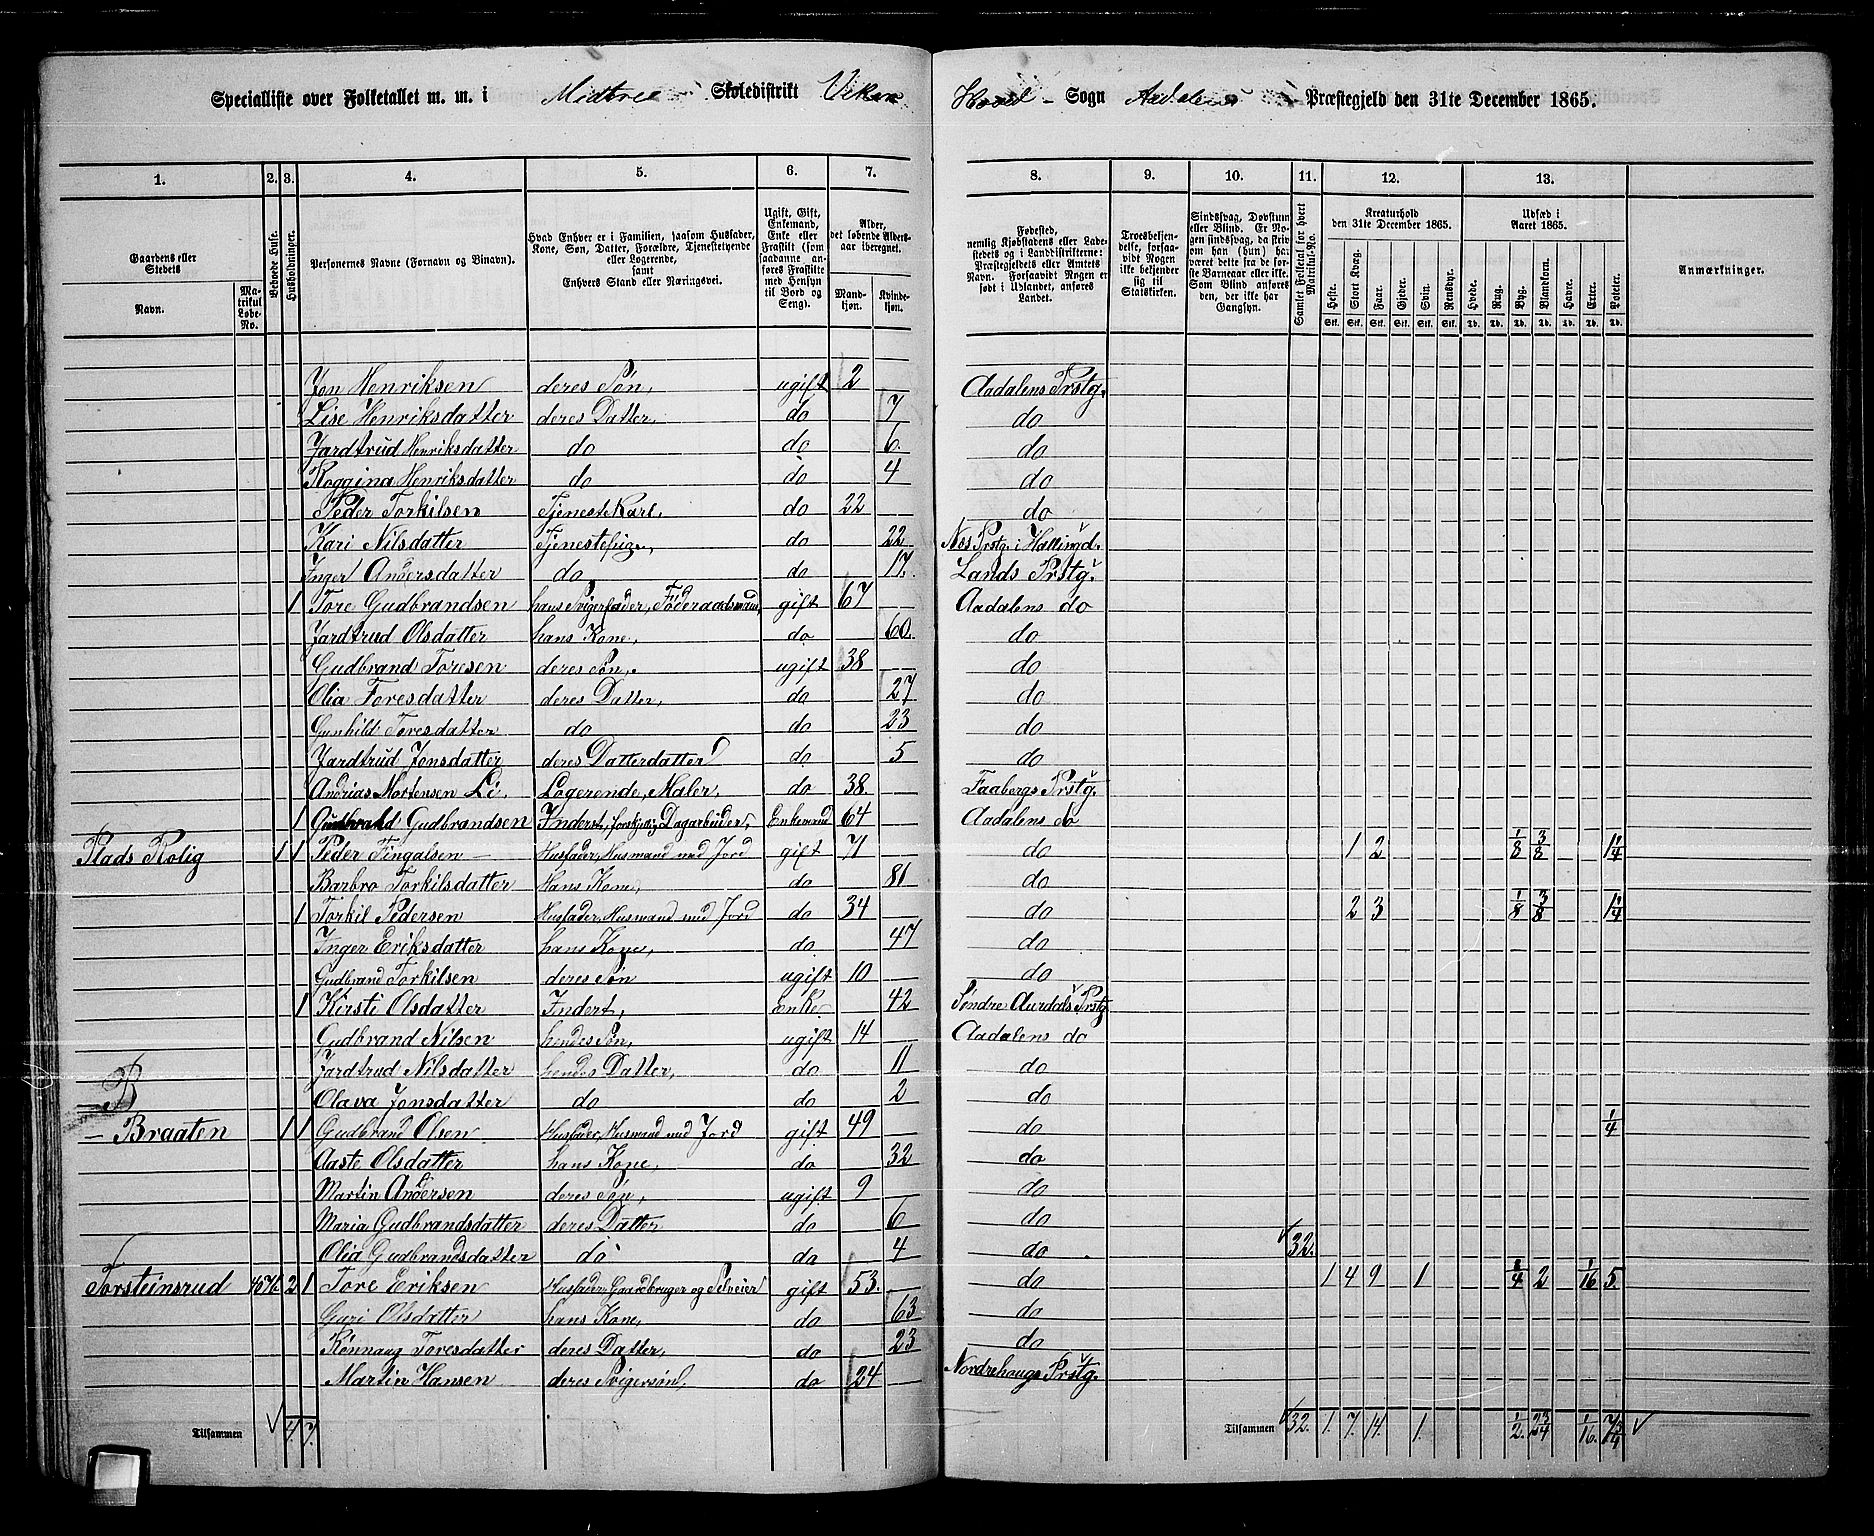 Specialliste over Folketallet m. m. i Midtre Skoledistrikt Viker Hoved Sogn Aadalens Præstegjeld den 31te December 1865.
1. 2. 3. 4. 5. 6. 7. 8. 9. 10. 11. 12. 13.
Gaardens eller Stedets Navn. Matrikul Løbe-No.
Beboede Huse.
Husholdninger.
Personernes Navne (Fornavn og Binavn).
Hvad Enhver er i Familien, saasom Husfader, Kone, Søn, Datter, Forældre, Tjenestetyende eller Logerende, samt Enhvers Stand eller Næringsvei.
Ugift, Gift, Enkemand, Enke eller Fraskilt (som saadanne anføres Fraskilte med Hensyn til Bord og Seng).
Alder, det løbende Aldersaar iberegnet. Mandkjøn. Kvindekjøn.
Fødested, nemlig Kjøbstadens eller Ladestedets og i Landdistrikterne: Præstegjeldets eller Amtets Navn. Forsaavidt Nogen er født i Udlandet, anføres Landet.
Troesbekjendelse, forsaavidt Nogen ikke bekjender sig til Statskirken.
Sindssvag, Døvstum eller Blind. Er Nogen sindssvag, da skriv om han (hun) har været dette fra de første Barneaar eller ikke. Som Blind anføres den, der ikke har Gangsyn.
Samlet Folketal for hvert Matrikul-No.
Kreaturhold den 31te December 1865. Heste. Stort Kvæg. Faar. Gjeder. Svin. Rensdyr.
Udsæd i Aaret 1865. Hvede. Rug. Byg. Blandkorn. Havre. Erter. Poteter.
Anmærkninger.
Jon Henriksen deres Søn, ugift 2 Aadalens Prstg.
Lise Henriksdatter deres Datter, do 7 do
Jardtrud Henriksdatter do do 6 do
Roggina Henriksdatter do do 4 do
Peder Torkilsen Tjenestekarl, do 22 do
Kari Nilsdatter Tjenestepige, do 22 Nes Prstg. i Hallingd.
Inger Andersdatter do do 17 Lands Prstg.
1 Tore Gudbrandsen hans Svigerfader, Føderaadsmand gift 67 Aadalens do
Jardtrud Olsdatter hans Kone, do 60 do
Gudbrand Toresen deres Søn, ugift 38 do
Olia Toresdatter deres Datter, do 27 do
Gunhild Toresdatter do do 23 do
Jardtrud Jonsdatter deres Datterdatter do 5 do
Andrias Mortensen Li, Logerende, Maler, do 38 Faabergs Prstg.
1 Gudbrand Gudbrandsen Inderst, forskjellig Dagarbeider, Enkemand 64 Aadalens do
Plads Rolig 1 1 Peder Fingalsen Husfader, Husmand med Jord gift 71 do 1 2 1/8 3/8 1 1/4
Barbro Torkilsdatter Hans Kone, do 81 do
1 Torkil Pedersen Husfader, Husmand med Jord do 34 do 2 3 1/8 3/8 1 1/4
Inger Eriksdatter hans Kone, do 47 do
Gudbrand Torkilsen deres Søn ugift 10 do
1 Kirsti Olsdatter Indert, Enke 42 Søndre Aurdals Prstg
Gudbrand Nilsen hendes Søn, ugift 14 Aadalens do
Jardtrud Nilsdatter hendes Datter, do 11 do
B Olava Jonsdatter do do 2 do
- Braaten 1 1 Gudbrand Olsen Husfader, Husmand med Jord gift 49 do 1/4
Aaste Olsdatter hans Kone, do 32 do
Martin Andersen deres Søn, ugift 9 do
Maria Gudbrandsdatter deres Datter do 6 do
Olia Gudbrandsdatter do do 4 do 32.
Torsteinsrud 2 1 Tore Eriksen Husfader, Gaardbruger og Selveier gift 53 do 1 4 9 1 1/4 2 1/16 5
Guri Olsdatter hans Kone, do 63 do
Rønnaug Toresdatter deres Datter, do 23 do
Martin Hansen deres Svigersøn, do 24 Nordrehougs Prstg.
Tilsammen 4. 7. Tilsammen 32. 1. 7. 14. 1. 1/2. 2 3/4 1/16. 7 3/4